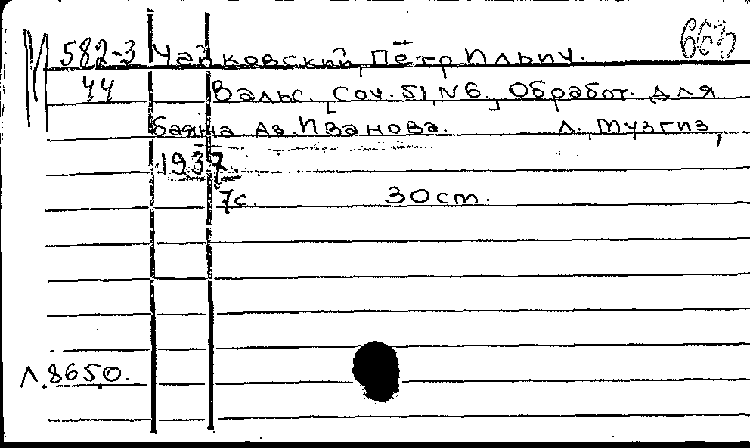 М 582-3 Чайковский, Пётр Ильич. 663
44 Вальс. [Соч. 51, N6.] Обработ. для
баяна Аз. Иванова. Л., Музгиз,
1937.
7с. 30 cm.
Л. 8650.